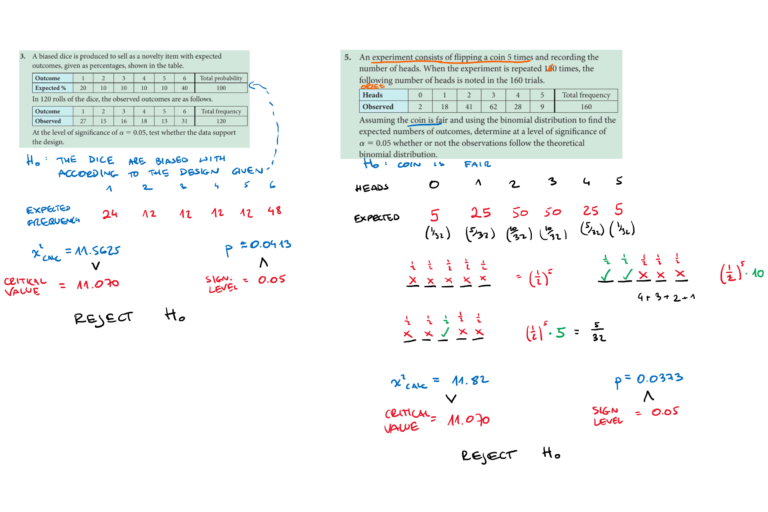 3. A biased dice is produced to sell as a novelty item with expected
outcomes, given as percentages, shown in the table.
Outcome 1 2 3 4 5 6 Total probability
Expected % 20 10 10 10 10 40 100
In 120 rolls of the dice, the observed outcomes are as follows.
Outcome 1 2 3 4 5 6 Total frequency
Observed 27 15 16 18 13 31 120
At the level of significance of α = 0.05, test whether the data support
the design.
H₀: THE DICE ARE BIASED WITH
ACCORDING TO THE DESIGN GIVEN
1 2 3 4 5 6
EXPECTED
FREQUENCY 24 12 12 12 12 48
x² CALC = 11.5625 p = 0.0413
V Λ
CRITICAL VALUE = 11.070 SIGN. LEVEL = 0.05
REJECT H₀
5. An experiment consists of flipping a coin 5 times and recording the
number of heads. When the experiment is repeated 160 times, the
following number of heads is noted in the 160 trials.
Heads 0 1 2 3 4 5 Total frequency
Observed 2 18 41 62 28 9 160
Assuming the coin is fair and using the binomial distribution to find the
expected numbers of outcomes, determine at a level of significance of
α = 0.05 whether or not the observations follow the theoretical
binomial distribution.
H₀: COIN IS FAIR
HEADS 0 1 2 3 4 5
EXPECTED 5 25 50 50 25 5
(1/32) (5/32) (10/32) (10/32) (5/32) (1/32)
1/2 1/2 1/2 1/2 1/2 1/2 1/2 1/2 1/2 1/2
x x x x x = (1/2)⁵ ✓ ✓ x x x (1/2)⁵ · 10
4+3+2+1
1/2 1/2 1/2 1/2 1/2
x x ✓ x x (1/2)⁵ · 5 = 5/32
x² CALC = 11.82 p = 0.0373
V Λ
CRITICAL VALUE = 11.070 SIGN LEVEL = 0.05
REJECT H₀